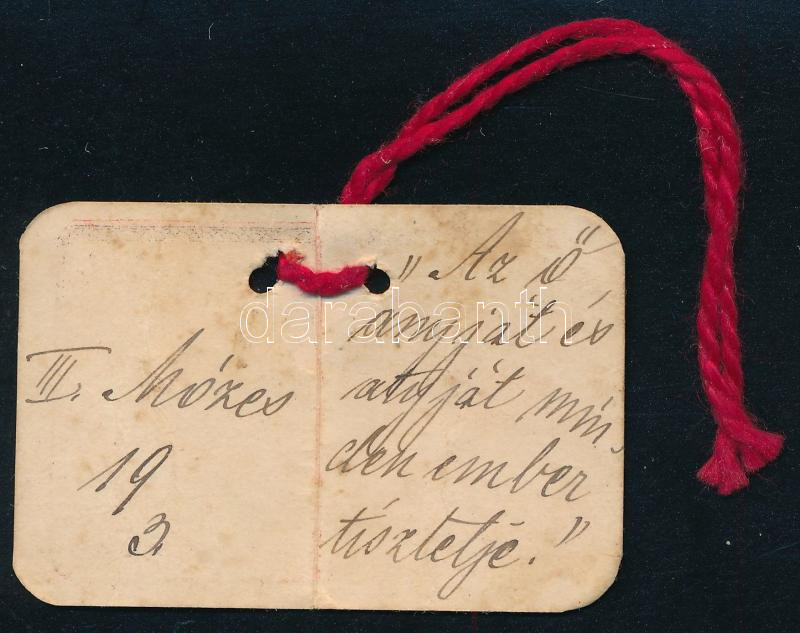 III. Mózes
19
3.
"Az ő
annyját és
atyját min-
den ember
tisztelje."
darabanth